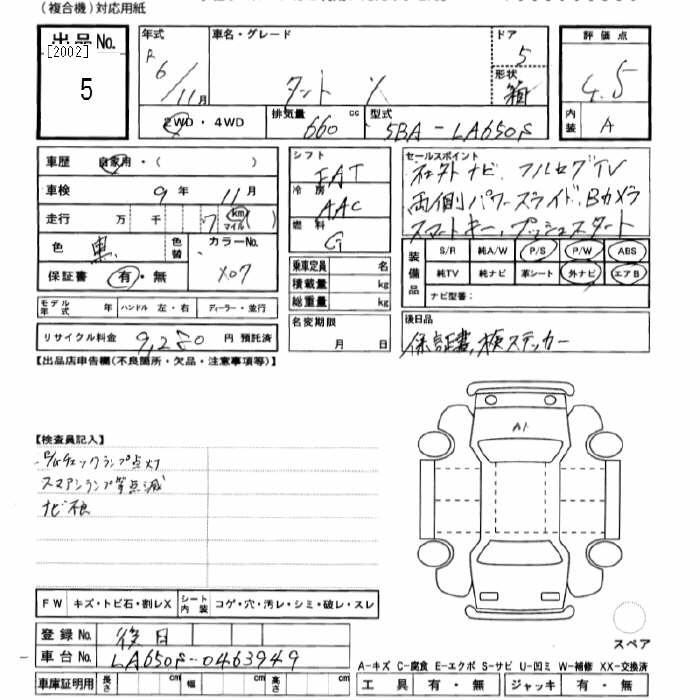 (複合機)対応用紙
出品No.
[2002]
5
年式
R
6/11月
車名・グレード
タント X
ドア
5
形状
箱
評価点
4.5
内装
A
2WD・4WD
排気量 660 cc
型式 5BA-LA650S
車歴 自家用・( )
車検 9年 11月
走行 万 千 7 km マイル ( )
色 黒 色替
カラーNo. X07
保証書 有・無
モデル年式 年
ハンドル 左・右
ディーラー・並行
リサイクル料金 9,280 円 預託済
シフト
FAT
冷房
AAC
燃料
G
乗車定員 名
積載量 kg
総重量 kg
名変期限
月 日
セールスポイント
社外ナビ フルセグTV
両側パワースライド、Bカメラ
スマートキー、プッシュスタート
装備品
S/R 純A/W P/S P/W ABS
純TV 純ナビ 革シート 外ナビ エアB
ナビ型番:
後日品
保証書、検ステッカー
【出品店申告欄(不良箇所・欠品・注意事項等)】
【検査員記入】
チェックランプ点灯
スマアシランプ等点滅
ナビ
A1
FW キズ・トビ石・割レX
シート内装 コゲ・穴・汚レ・シミ・破レ・スレ
登録No. 後日
車台No. LA650S-0463949
車庫証明用 長さ cm 幅 cm 高さ cm
スペア
A-キズ C-腐食 E-エクボ S-サビ U-凹ミ W-補修 XX-交換済
工具 有・無 ジャッキ 有・無